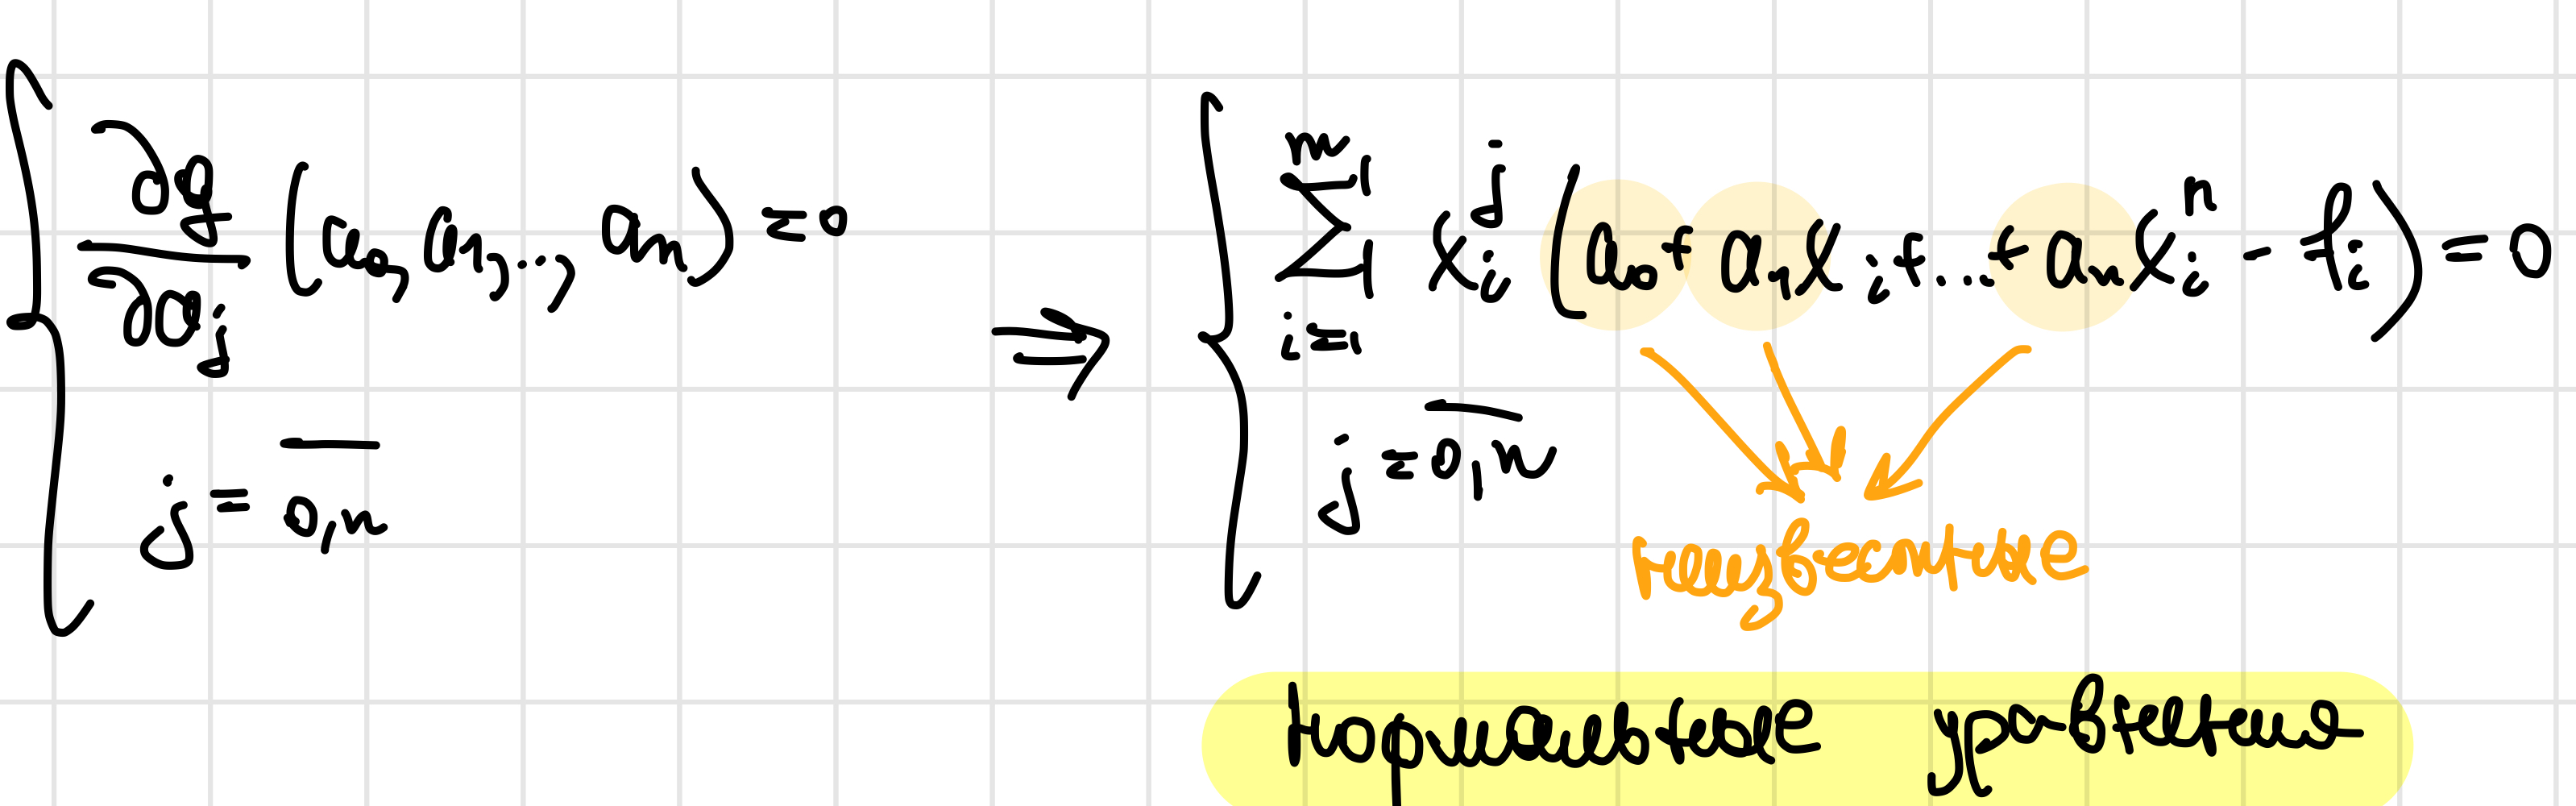 ∂g/∂a_j (a_0, a_1, ..., a_n) = 0
j = \overline{0,n}
⇒
∑_{i=1}^{m} x_i^j (a_0 + a_1 x_i + ... + a_n x_i^n - f_i) = 0
j = \overline{0,n}
неизвестные
нормальные уравнения